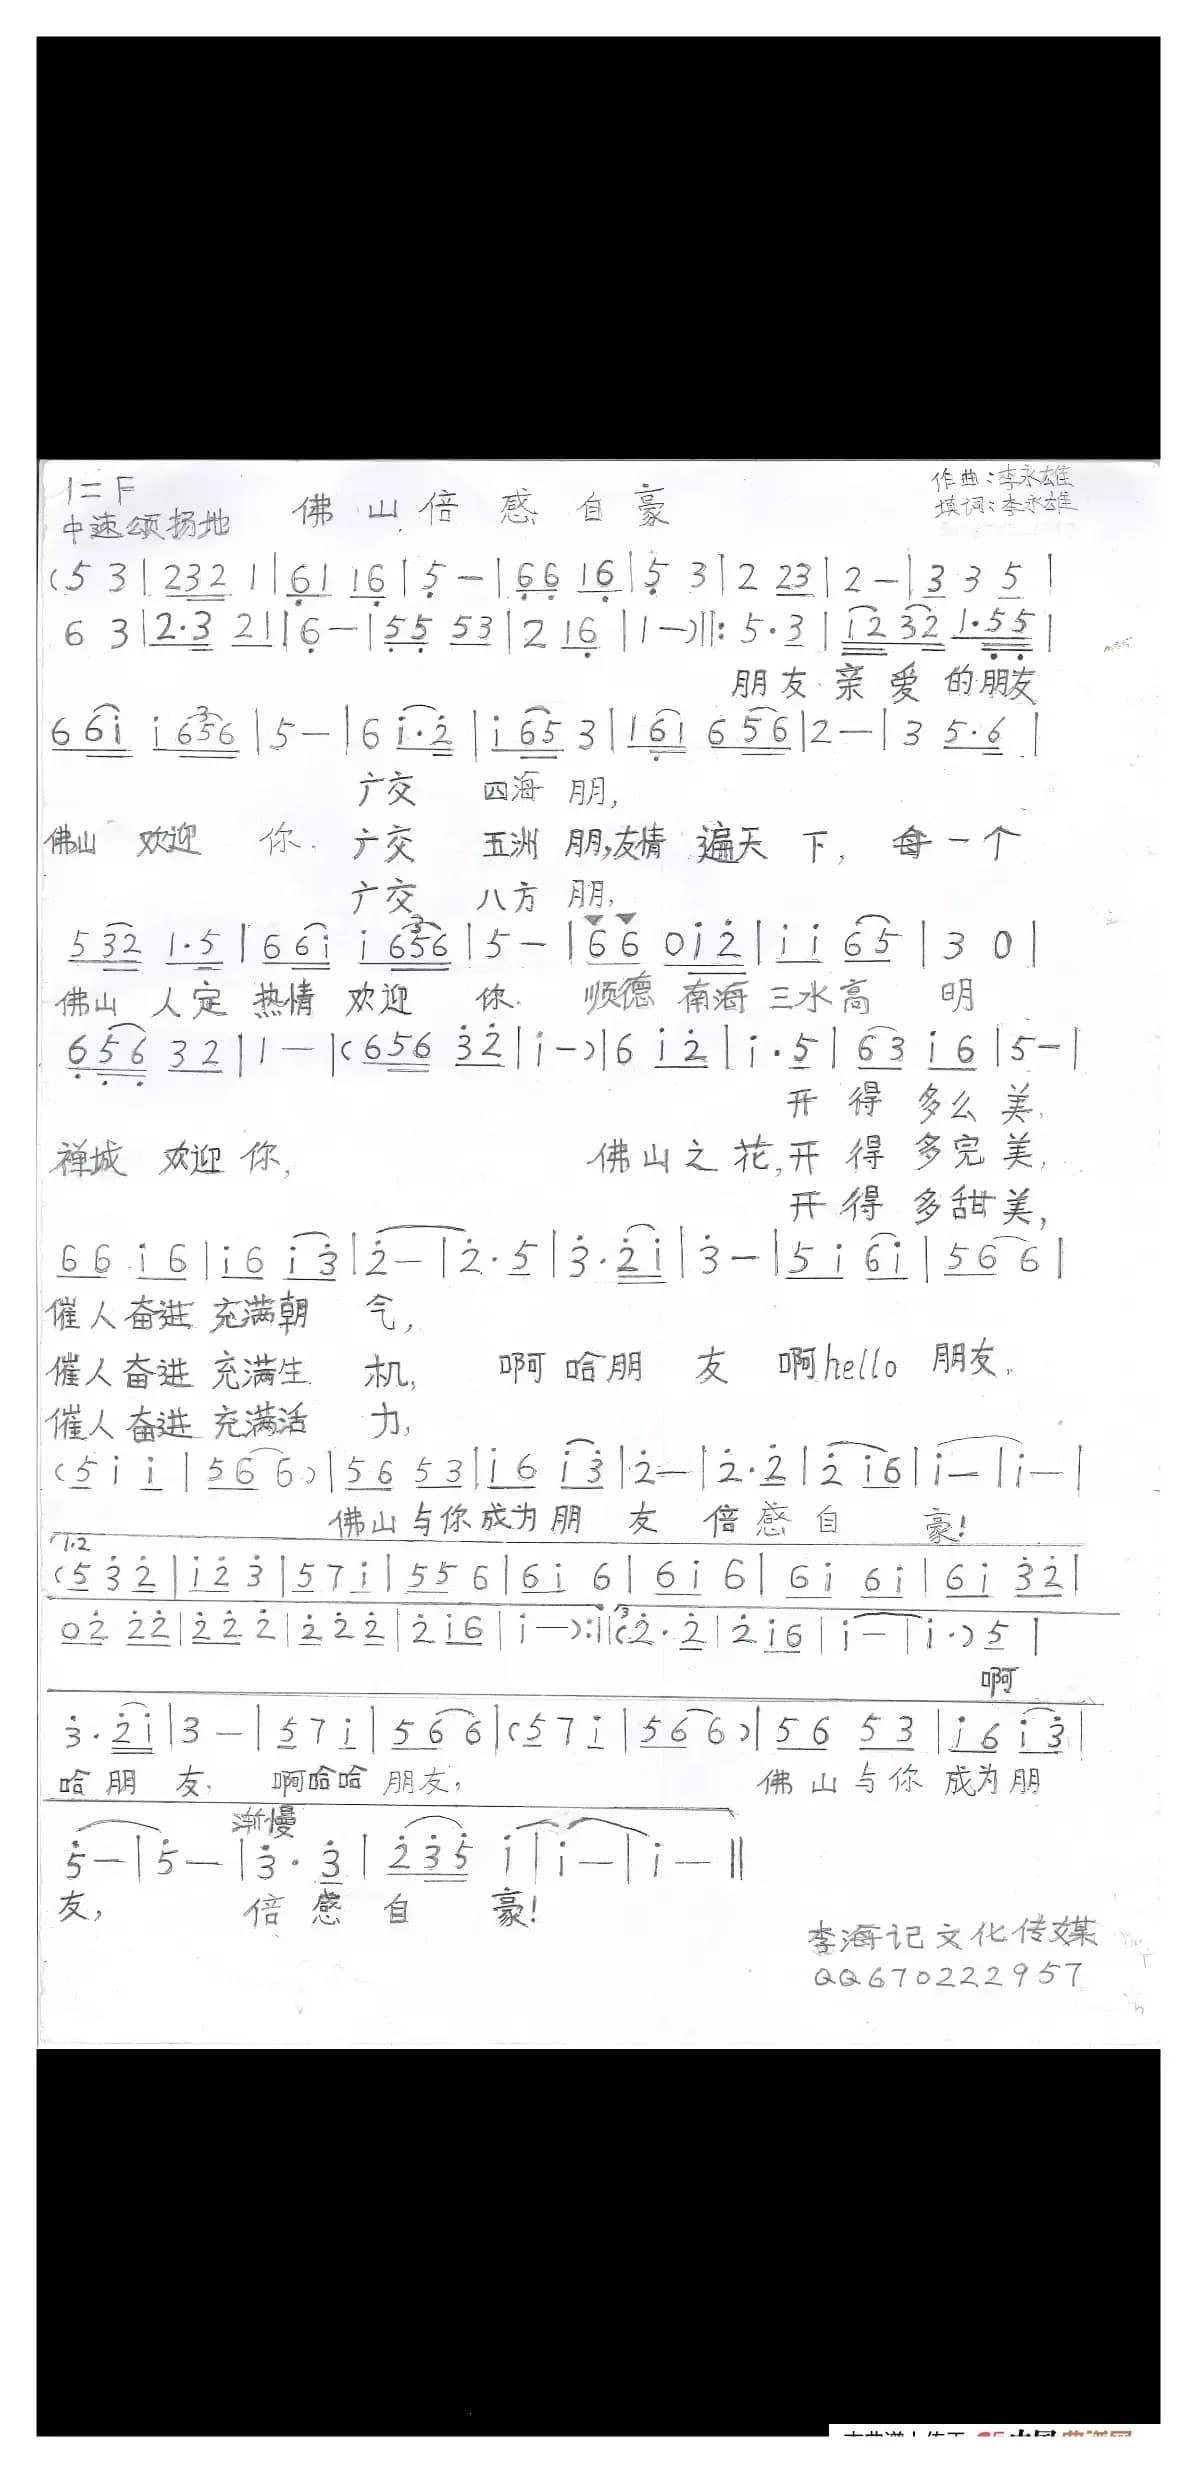 1=F
中速颂扬地
佛山倍感自豪
作曲:李永雄
填词:李永雄
(5 3|232 1|61 16|5-|66 16|5 3|2 23|2-|3 3 5|
6 3|2·3 21|6-|55 53|2 16|1-)‖: 5·3|i2 32 1·55|
朋友 亲 爱 的朋友
6 6i i 656|5-|6 i·2|i 65 3|16i 656|2-|3 5·6|
广交 四海 朋,
佛山 欢迎 你. 广交 五洲 朋,友情 遍天 下, 每一个
广交 八方 朋,
5 32 1·5|6 6i i 656|5-|66 0i2|ii 65|3 0|
佛山 人定 热情 欢迎 你. 顺德 南海 三水高 明
656 32|1-|(656 32|i-)|6 i2|i·5|63 i6|5-|
开 得 多么 美.
禅城 欢迎 你, 佛山之花,开 得 多完美,
开 得 多甜美,
66 i6|i6 i3|2-|2·5|3·2i|3-|5i 6i|5 6 6|
催人奋进 充满朝 气,
催人奋进 充满生 机, 啊哈朋 友 啊hello 朋友.
催人奋进 充满活 力,
(5 i i|5 6 6)|56 53|i6 i3|2-|2·2|2 i6|i-|i-|
佛山与你成为朋 友 倍感自 豪!
1.2
(5 3 2|i 2 3|5 7 i|55 6|6i 6|6i 6|6i 6i|6i 32|
02 22|22 2|2 2 2|2 i6|i-):‖3(2·2|2 i6|i-|i·) 5|
啊
3·2i|3-|5 7 i|5 6 6|(5 7 i|5 6 6)|56 53|i6 i3|
哈朋 友, 啊哈哈 朋友, 佛山与你 成为朋
渐慢
5-|5-|3·3|2 3 5 i|i-|i-‖
友, 倍感自 豪!
李海记文化传媒
QQ670222957